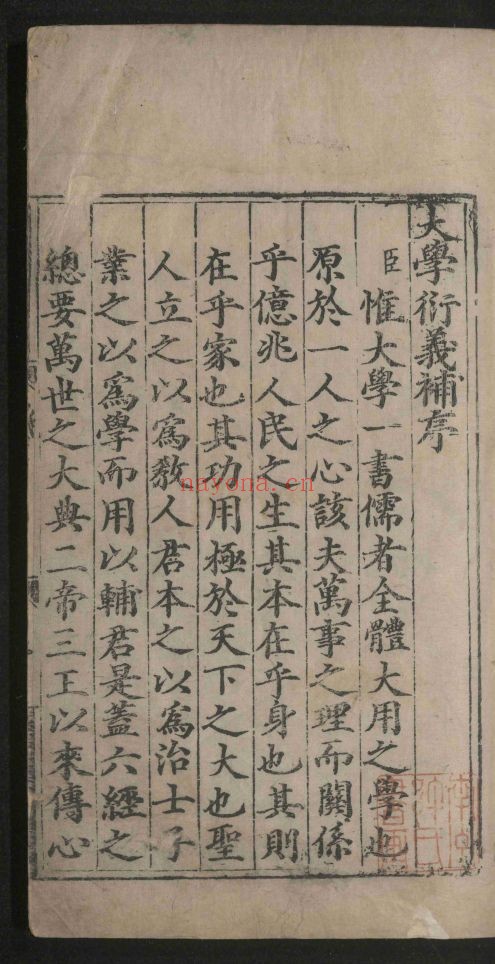 大學衍義補序
臣惟大學一書儒者全體大用之學也
原於一人之心該夫萬事之理而關係
乎億兆人民之生其本在乎身也其則
在乎家也其功用極於天下之大也聖
人立之以爲教人君本之以爲治士子
業之以爲學而用以輔君是蓋六經之
總要萬世之大典二帝三王以來傳心
nayona.cn